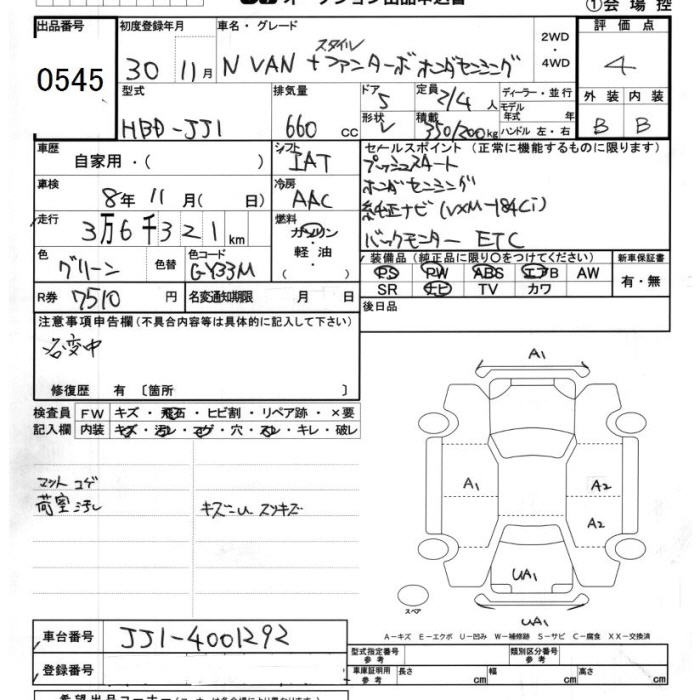 オークション出品申込書
①会場控
出品番号
0545
初度登録年月
30 11月
車名・グレード
N VAN +スタイル ファンターボ ホンダセンシング
2WD・4WD
評価点
4
外装 内装
B B
型式
HBD-JJ1
排気量
660 cc
ドア
5
形状
V
定員
2/4 人
積載
350/200kg
ディーラー・並行
モデル年式 年
ハンドル 左・右
車歴
自家用・( )
シフト
IAT
車検
8年 11月( 日)
冷房
AAC
走行
3万6千321km
燃料
ガソリン・軽油・
色
グリーン
色替
色コード
GY33M
R券
7510 円
名変通知期限 月 日
セールスポイント(正常に機能するものに限ります)
プッシュスタート
ホンダセンシング
純正ナビ(VXM-184Ci)
バックモニター ETC
装備品(純正品に限り○をつけてください)
PS PW ABS エアB AW
SR ナビ TV カワ
新車保証書
有・無
後日品
注意事項申告欄(不具合内容等は具体的に記入して下さい)
名変中
修復歴 有〔箇所 〕
検査員記入欄
FW キズ・飛石・ヒビ割・リペア跡・×要
内装 キズ・汚レ・コゲ・穴・スレ・キレ・破レ
マット コゲ
荷室汚レ
キズ凹 スリキズ
A1
A1
A2
A2
UA1
UA1
スペア
A-キズ E-エクボ U-凹み W-補修跡 S-サビ C-腐食 XX-交換済
車台番号
JJ1-4001292
登録番号
型式指定番号 参考
類別区分番号 参考
車庫証明用 参考 長さ cm 幅 cm 高さ cm
希望出品コーナー